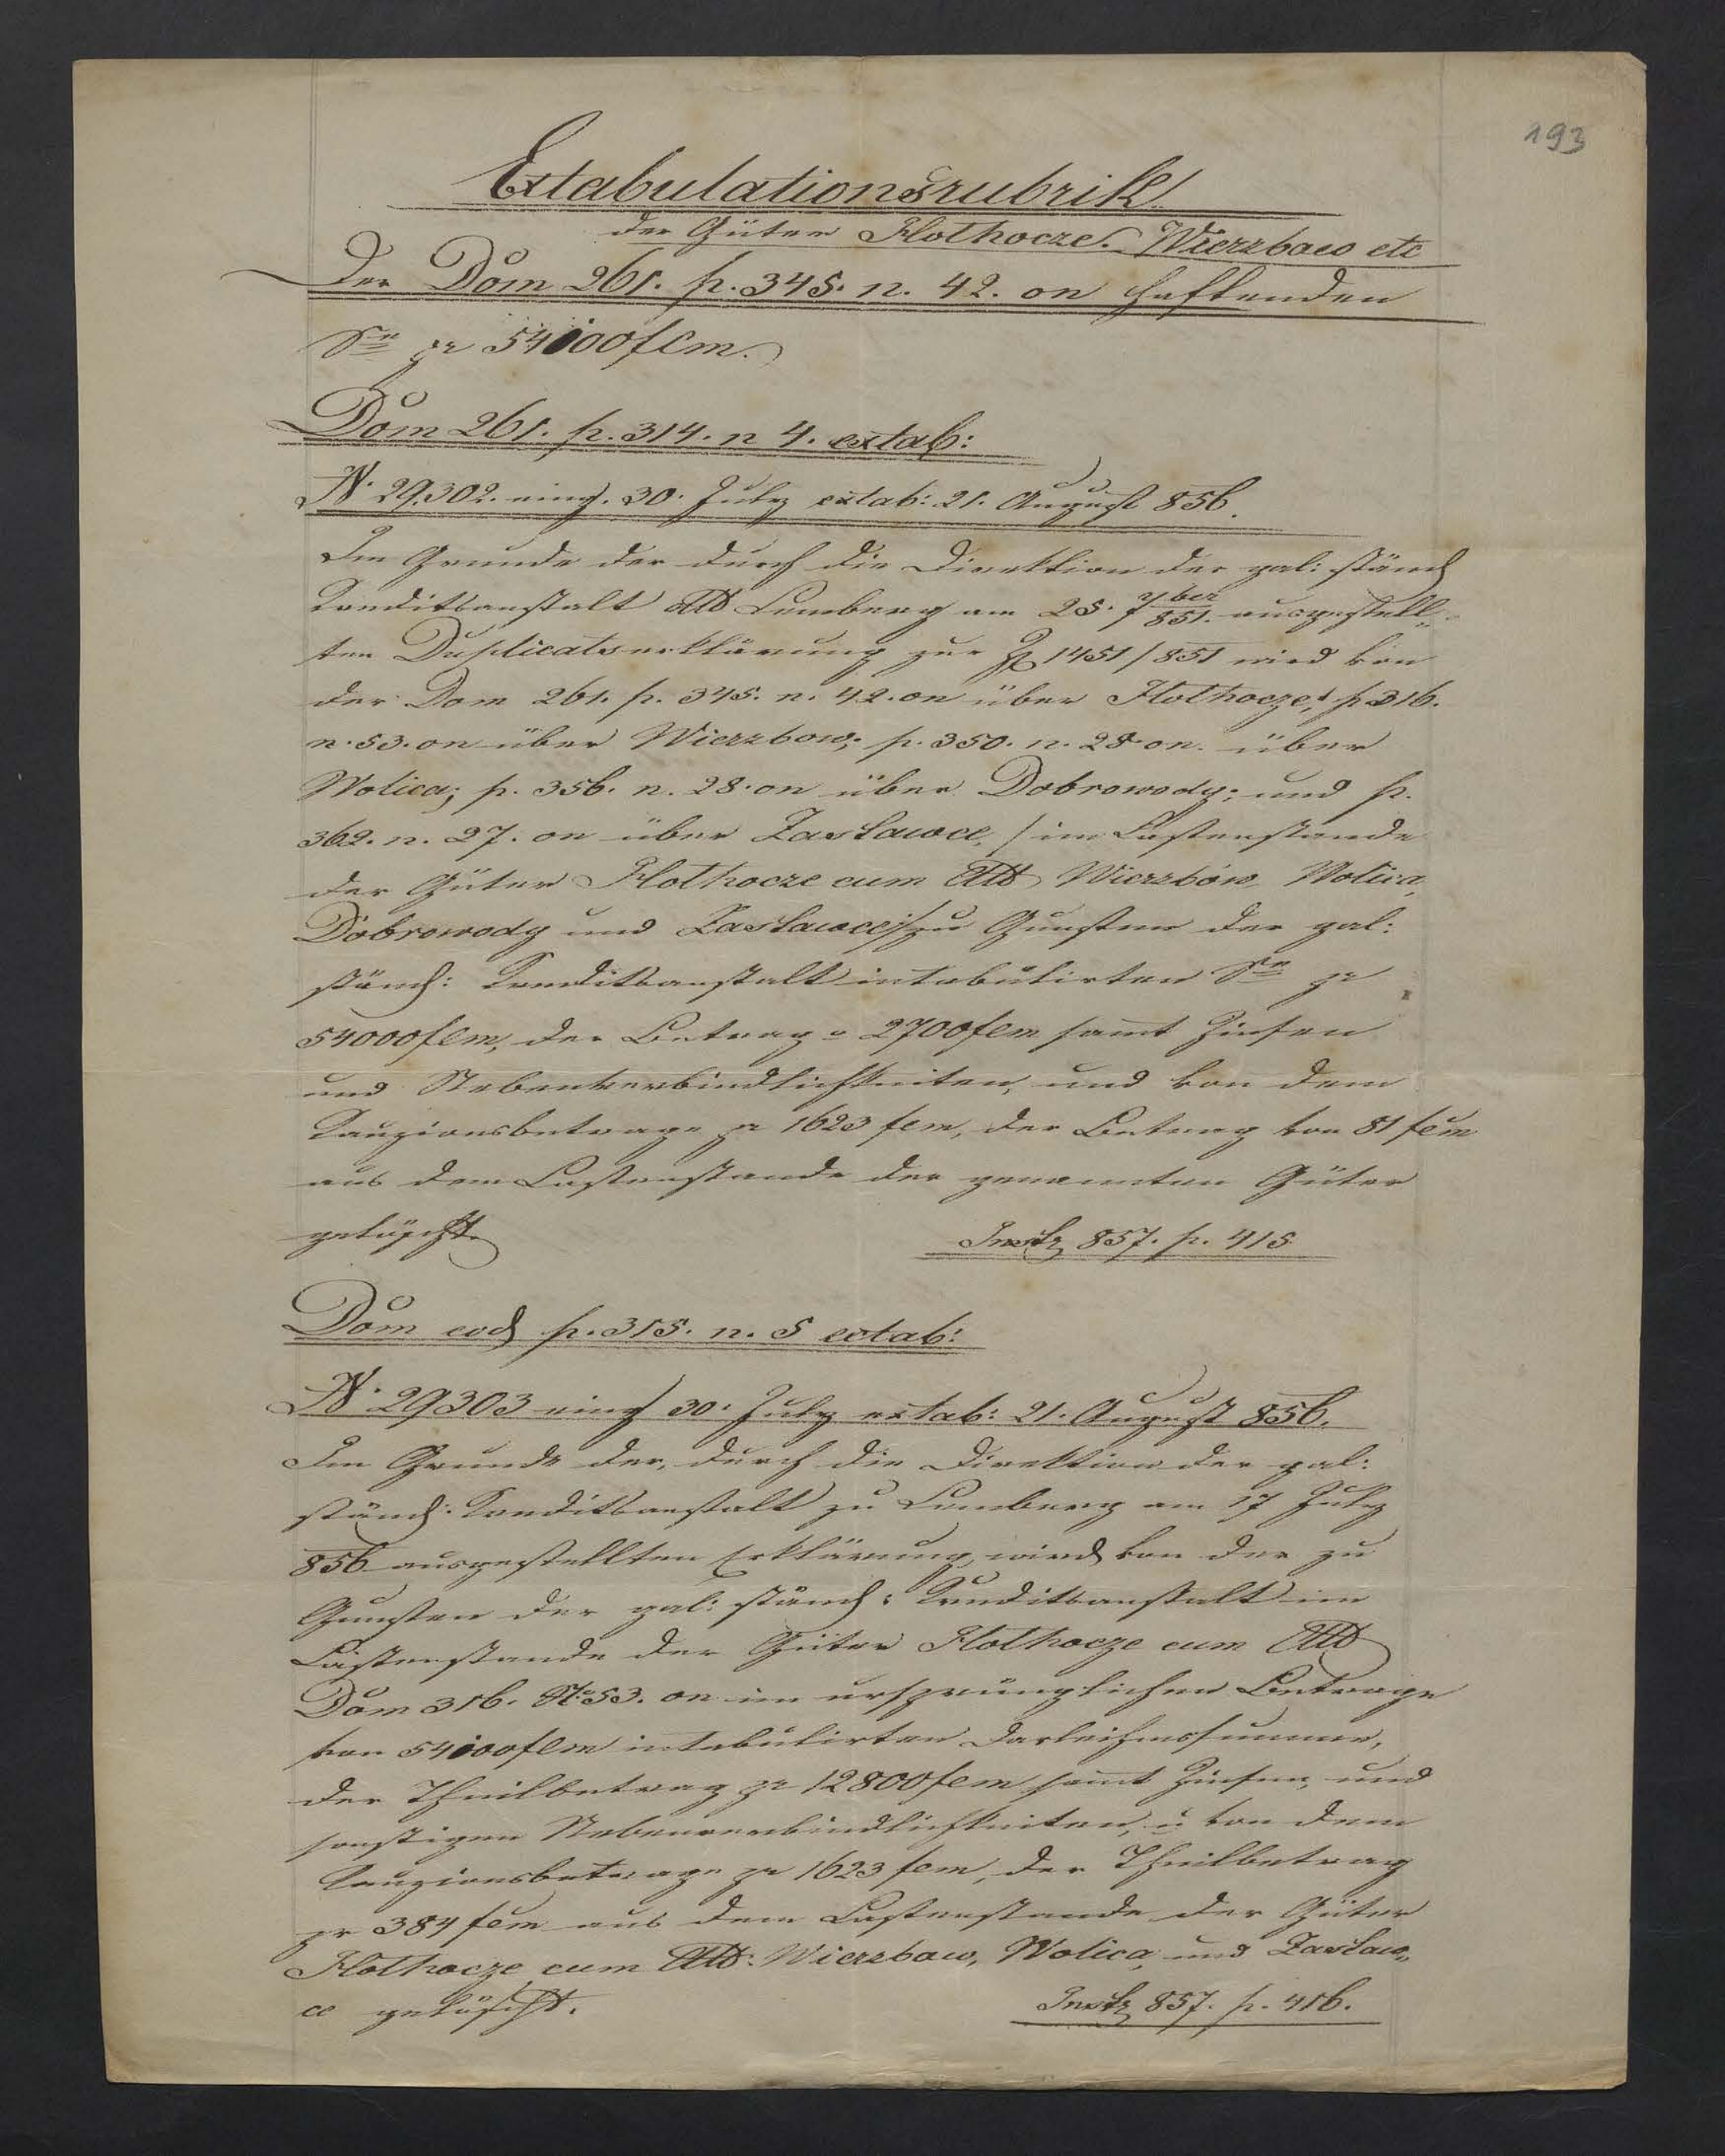 193
Extabulationsrubrik
der Güter Hothocze. Wierzbow etc
der Dom 261. p. 345. n. 42. on haftenden
Sᵉ pr 54000 fCm.
Dom 261. p. 314. n 4. extab:
N. 29302. eing. 30. July extab: 21. August 856.
Im Grunde der durch die Direktion der gal: ständ
Kreditsanstalt Lemberg am 25. 7ber 851. ausgestell„
ten Duplicatserklärung zur Z 1451/851 wird von
der Dom 261. p. 345. n. 42. on über Hothocze, p. 316.
n. 53. on über Wierzbow, p. 350. n. 28 on. über
Wolica; p. 356. n. 28. on über Dobrowody; und p.
362. n. 27. on über Zastawce, / im Lastenstande
der Güter Hothocze cum Att Wierzbów Wolica,
Dobrowody und Zastawce / zu Gunsten der gal:
ständ: Kreditsanstalt intabulirten Sᵉ pr
54000 fCm, der Betrag 2700 fCm sammt Zinsen
und Nebenverbindlichkeiten, und von dem
Kauzionsbetrage pr 1623 fCm, der Betrag von 81 fCm
aus dem Lastenstande der genannten Güter
gelöscht.
Instz 857. p. 415
Dom eod p. 315. n. 5 extab:
N. 29303 eing 30. July extab: 21. August 856.
Im Grunde der, durch die Direktion der gal:
ständ: Kreditsanstalt zu Lemberg am 17 July
856 ausgestellten Erklärung, wird von der zu
Gunsten der gal: ständ: Kreditsanstalt im
Lastenstande der Güter Hothocze cum Att
Dom 316. N. 53. on im ursprünglichen Betrage
von 54000 fCm intabulirten Darleihenssumme,
der Theilbetrag pr 12800 fCm sammt Zinsen, und
sonstigen Nebenverbindlichkeiten, u von dem
Kauzionsbetrage pr 1623 fCm, der Theilbetrag
pr 384 fCm aus dem Lastenstande der Güter
Hothocze cum Att: Wierzbow, Wolica, und Zastaw„
ce gelöscht.
Instz 857. p. 416.